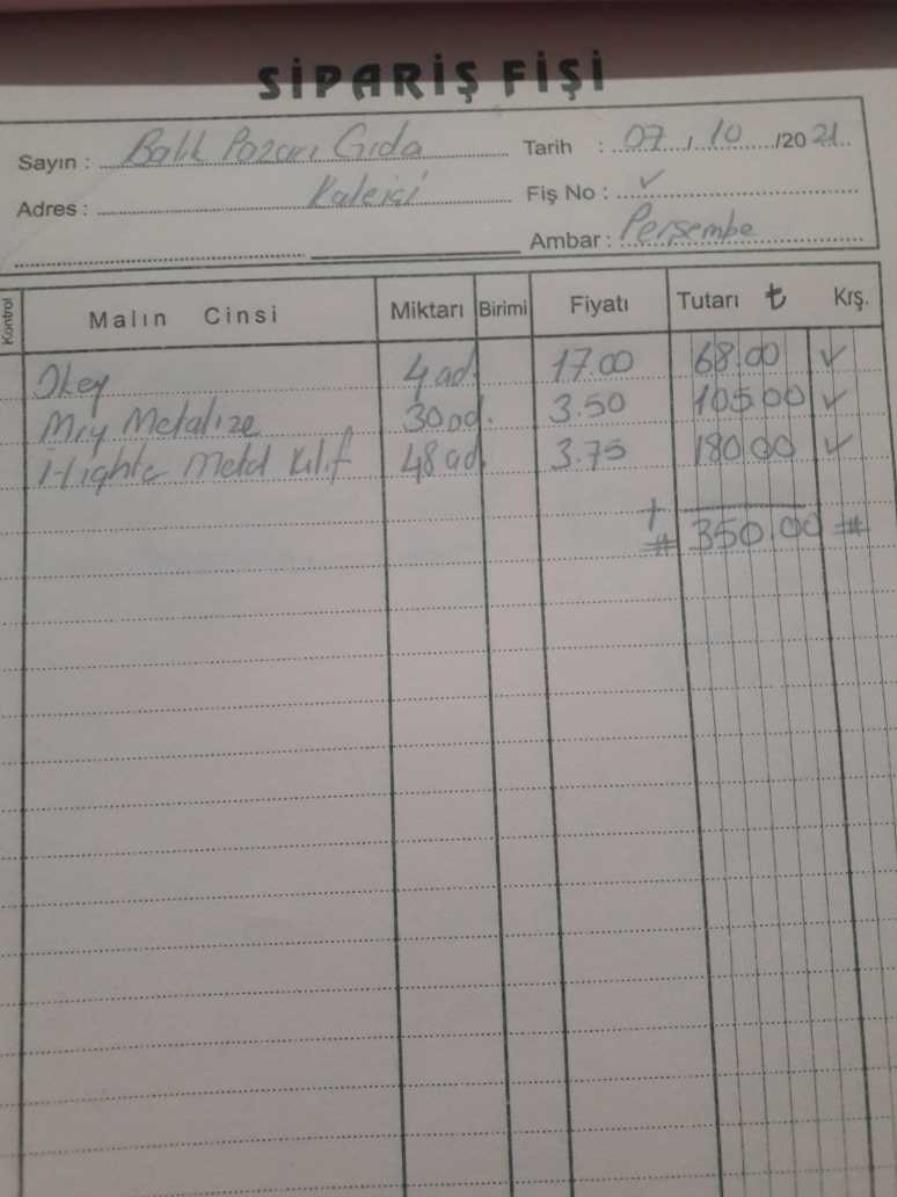 SİPARİŞ FİŞİ
Sayın : Balık Pazarı Gıda Tarih : 07 / 10 /20 21
Adres : Kaleiçi Fiş No : ✓
Ambar : Perşembe
Kontrol Malın Cinsi Miktarı Birimi Fiyatı Tutarı ₺ Krş.
Okey 4 ad. 17.00 68.00 ✓
Metalize 30 ad. 3.50 105.00 ✓
Metal Kılıf 48 ad. 3.75 180.00 ✓
+
# 350.00 #